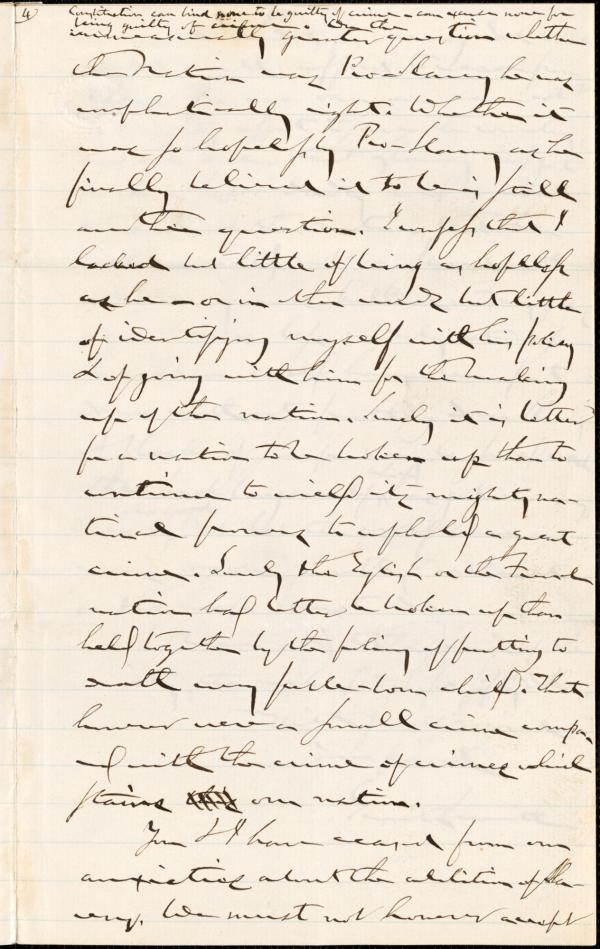 4
Constitution can bind none to be guilty of crime – can excuse none for
being guilty of crime. On the
immeasurably greater question whether
the Nation was Pro-Slavery he was
emphatically right. Whether it
was so hopelessly Pro-Slavery as he
finally believed it to be is still
another question. I confess that I
lacked but little of being as hopeless
as he – or in other words but little
of identifying myself with his policy
& of going with him for the breaking
up of the nation. Surely it is better
for a nation to be broken up than to
continue to wield its mighty na-
tional powers to uphold a great
crime. Surely the English or the French
nation had better be broken up than
held together by the policy of putting to
death every feeble-born child. That
however were a small crime compar-
ed with the crime of crimes which
stains our nation.
You & I have ceased from our
anxieties about the abolition of Sla-
very. We must not however accept